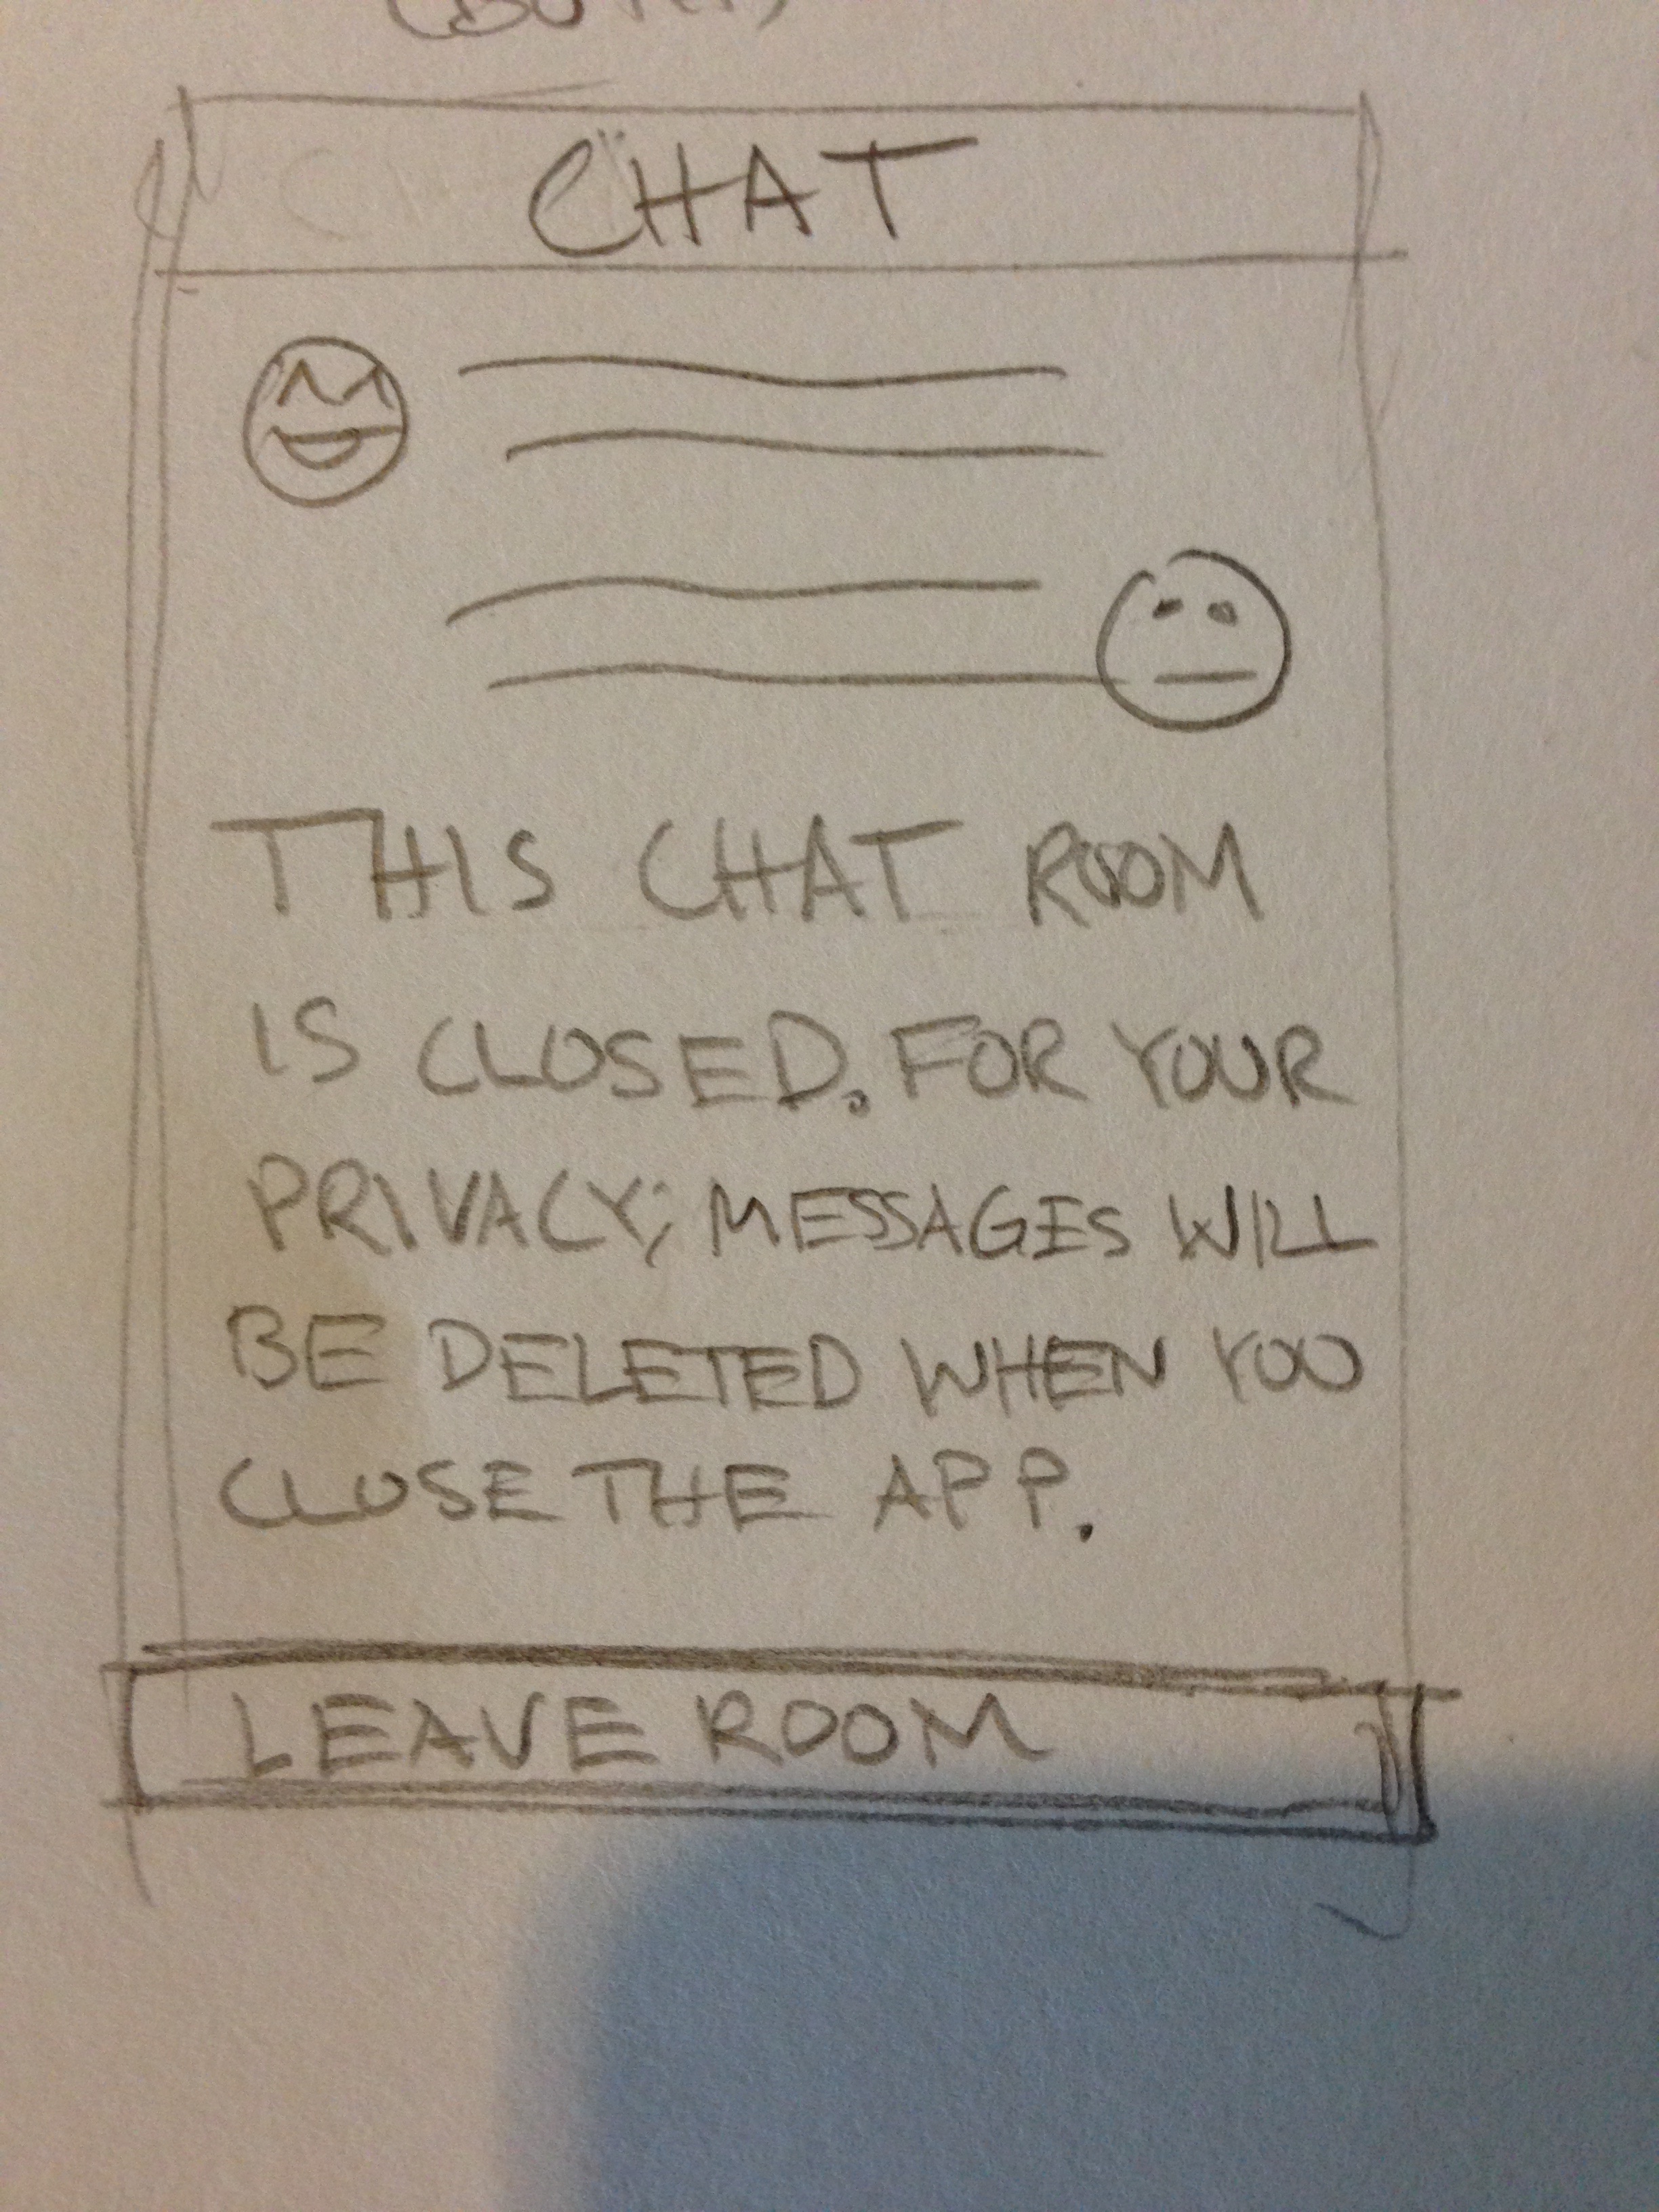 CHAT
THIS CHAT ROOM
IS CLOSED. FOR YOUR
PRIVACY; MESSAGES WILL
BE DELETED WHEN YOU
CLOSE THE APP.
LEAVE ROOM